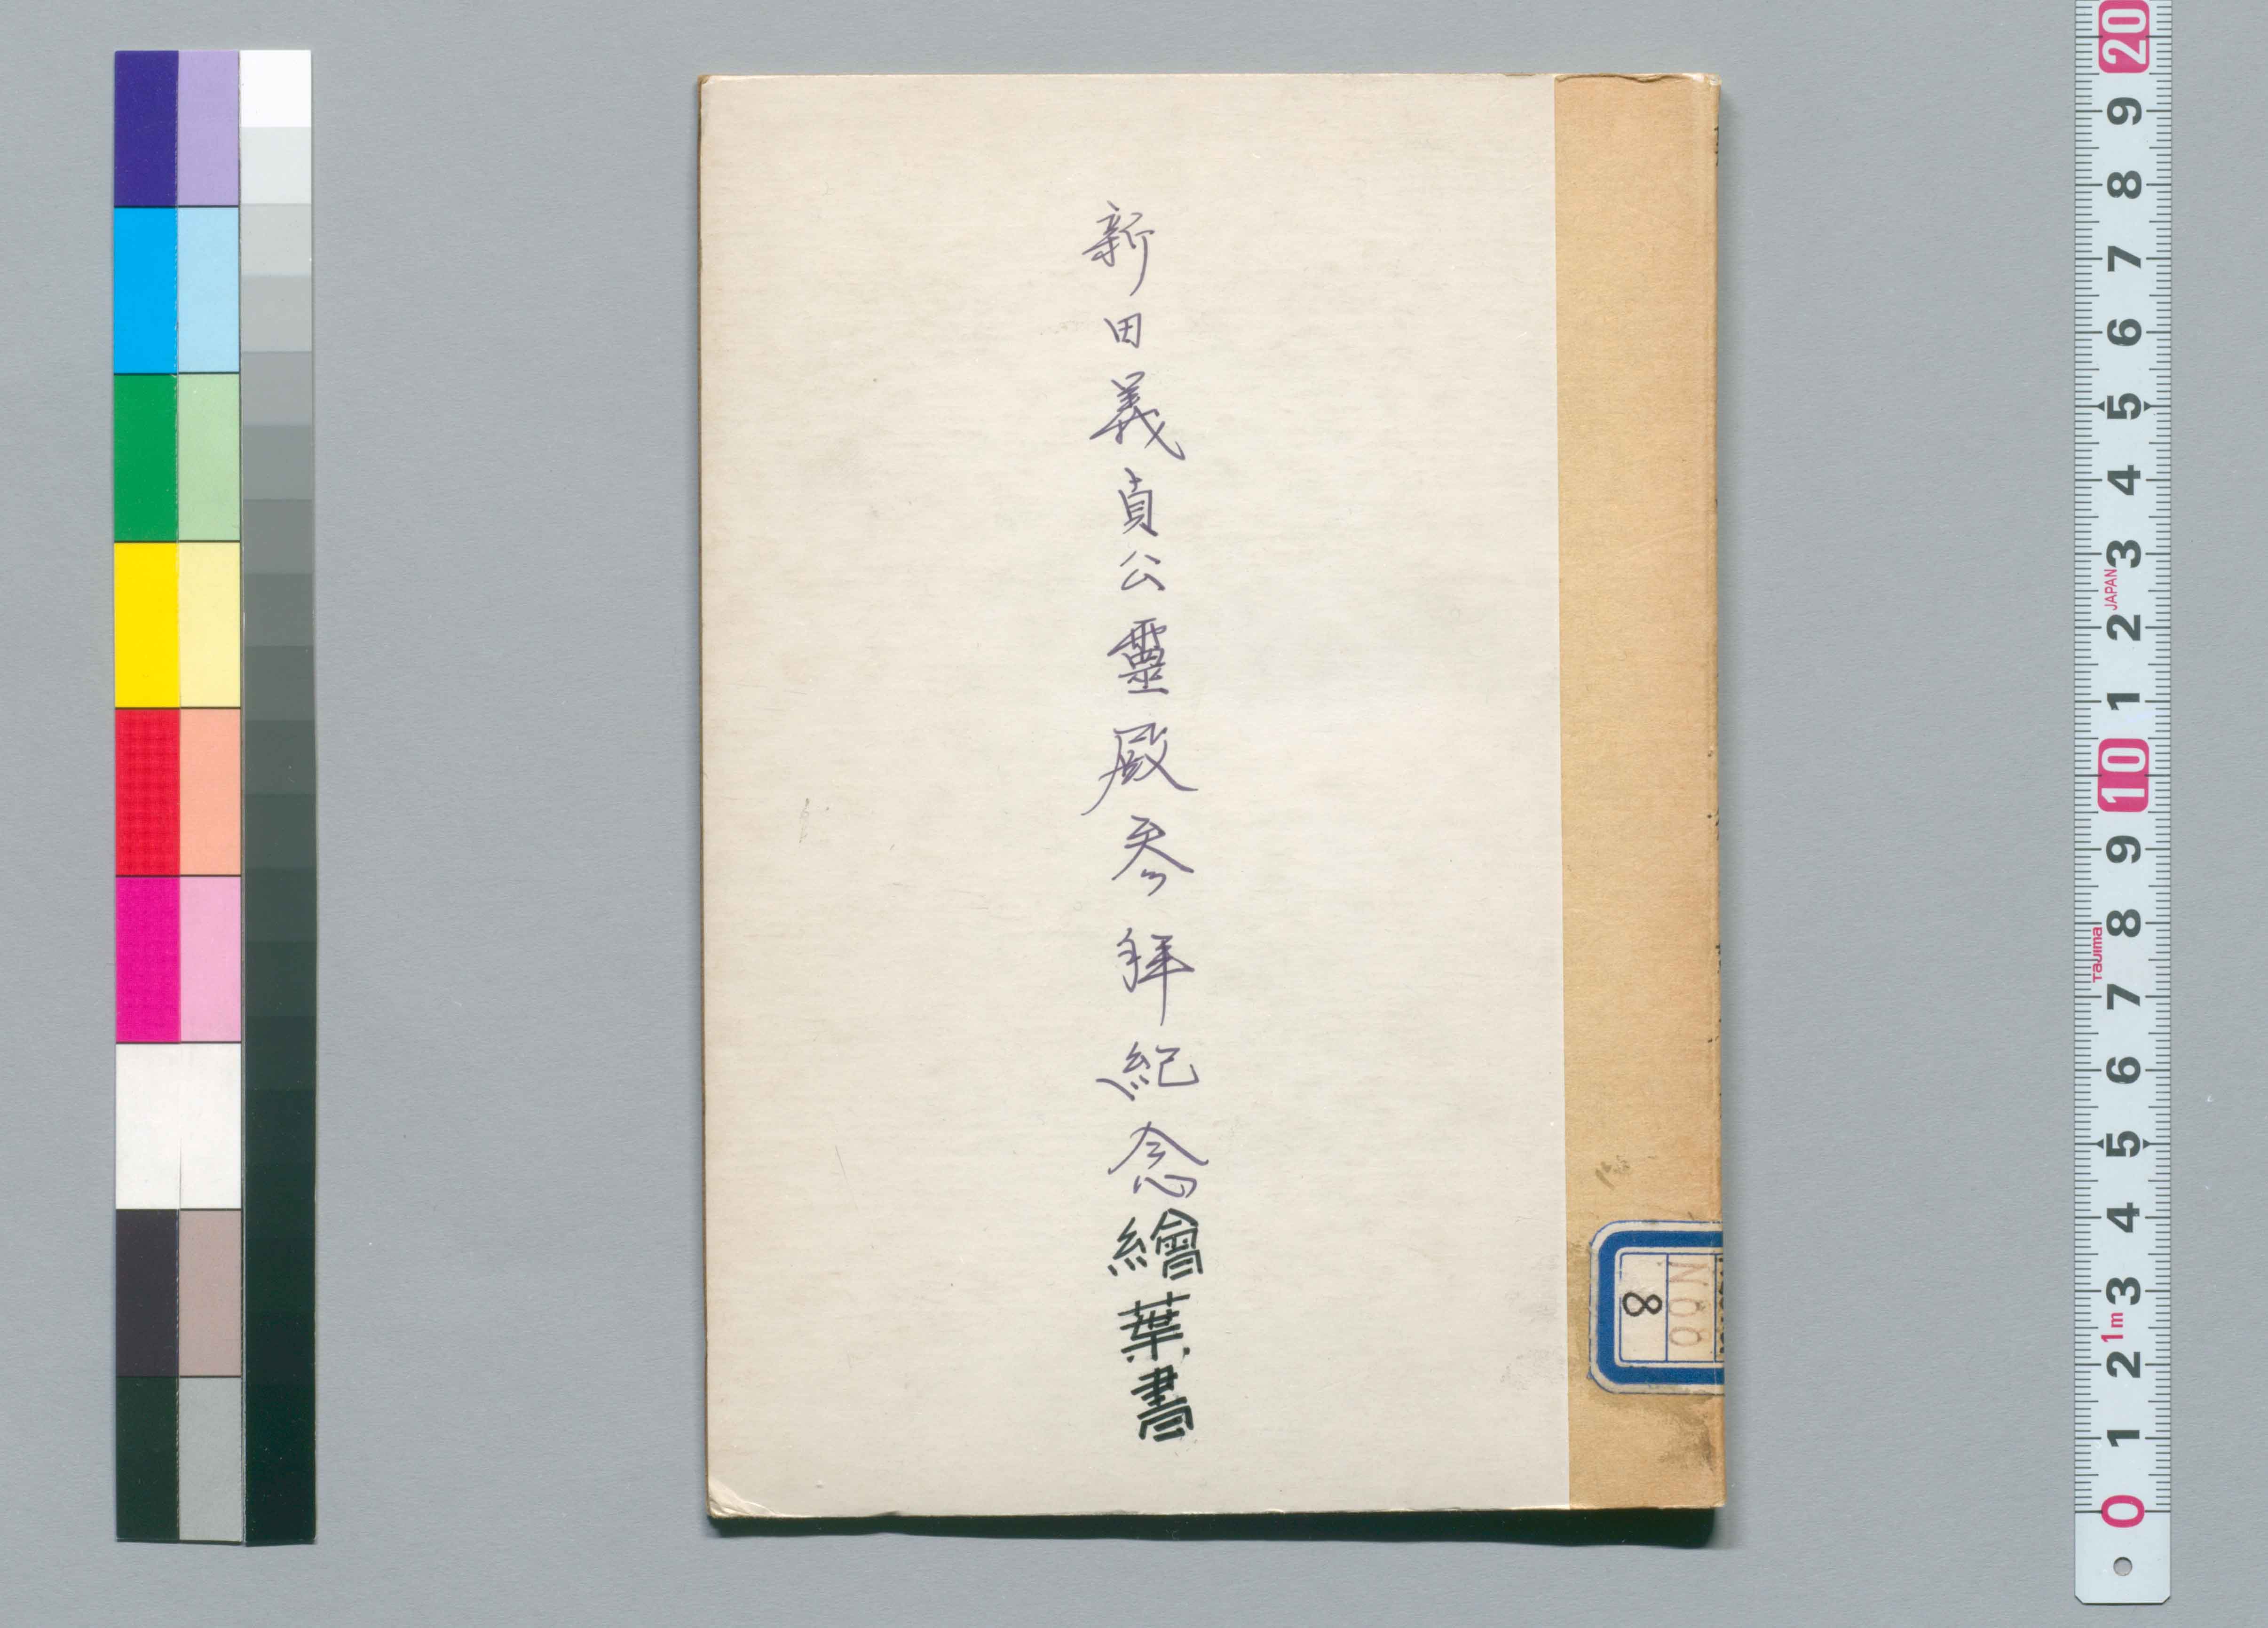 新田義貞公靈殿参拜紀念繪葉書
8
20
9
8
7
6
5
4
3
JAPAN
2
1
10
9
8
Tajima
7
6
5
4
3
1m
2
1
0